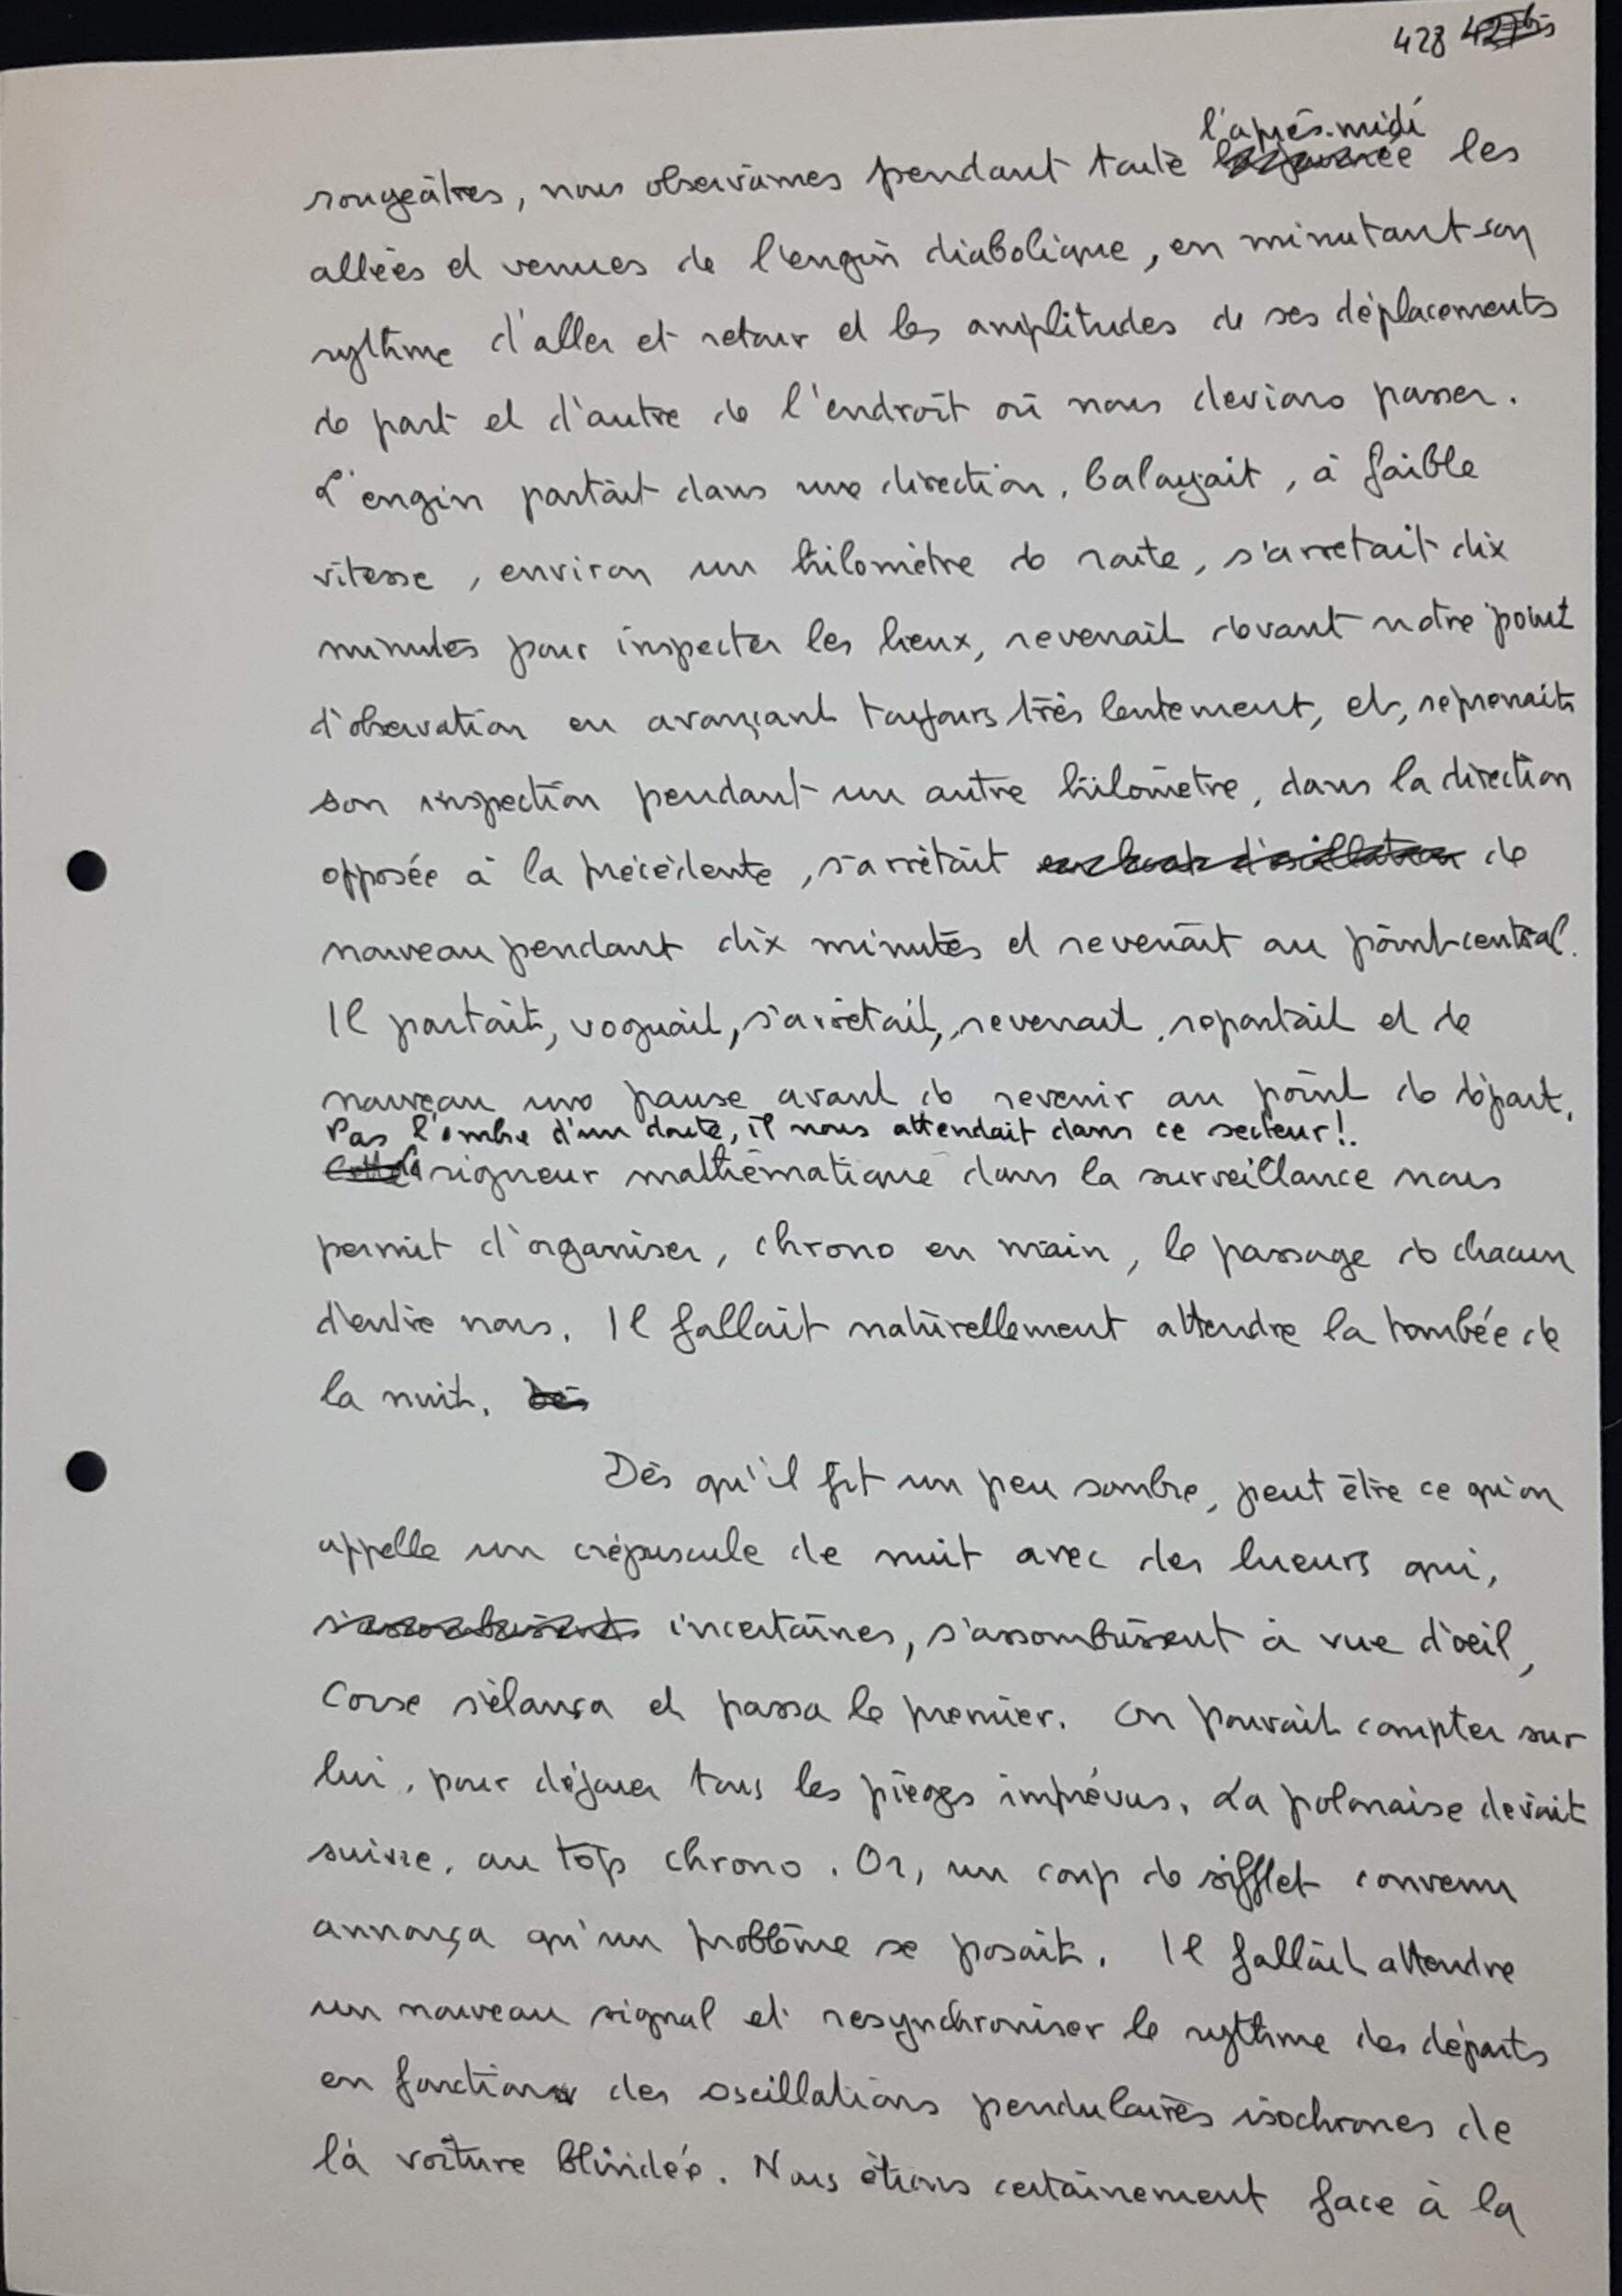 428 427bis
l'après-midi
rougeâtres, nous observâmes pendant toute la journée les
allées et venues de l'engin diabolique, en minutant son
rythme d'aller et retour et les amplitudes de ses déplacements
de part et d'autre de l'endroit où nous devions passer.
L'engin partait dans une direction, balayait, à faible
vitesse, environ un kilomètre de route, s'arretait dix
minutes pour inspecter les lieux, revenait devant notre point
d'observation en avançant toujours très lentement, et, reprenait
son inspection pendant un autre kilomètre, dans la direction
opposée à la précédente, s'arrêtait de
nouveau pendant dix minutes et revenait au point central.
Il partait, voguait, s'arrêtait, revenait, repartait et de
nouveau une pause avant de revenir au point de départ.
Pas l'ombre d'un doute, il nous attendait dans ce secteur!.
La rigueur mathématique dans la surveillance nous
permit d'organiser, chrono en main, le passage de chacun
d'entre nous. Il fallait naturellement attendre la tombée de
la nuit. Dès
Dès qu'il fit un peu sombre, peut être ce qu'on
appelle un crépuscule de nuit avec des lueurs qui,
s'assombrissent incertaines, s'assombrissent à vue d'oeil,
Corse s'élança et passa le premier. On pouvait compter sur
lui, pour déjouer tous les pièges imprévus. La polonaise devait
suivre, au top chrono. Or, un coup de sifflet convenu
annonça qu'un problème se posait. Il fallait attendre
un nouveau signal et resynchroniser le rythme des départs
en fonction des oscillations pendulaires isochrones de
la voiture blindée. Nous étions certainement face à la